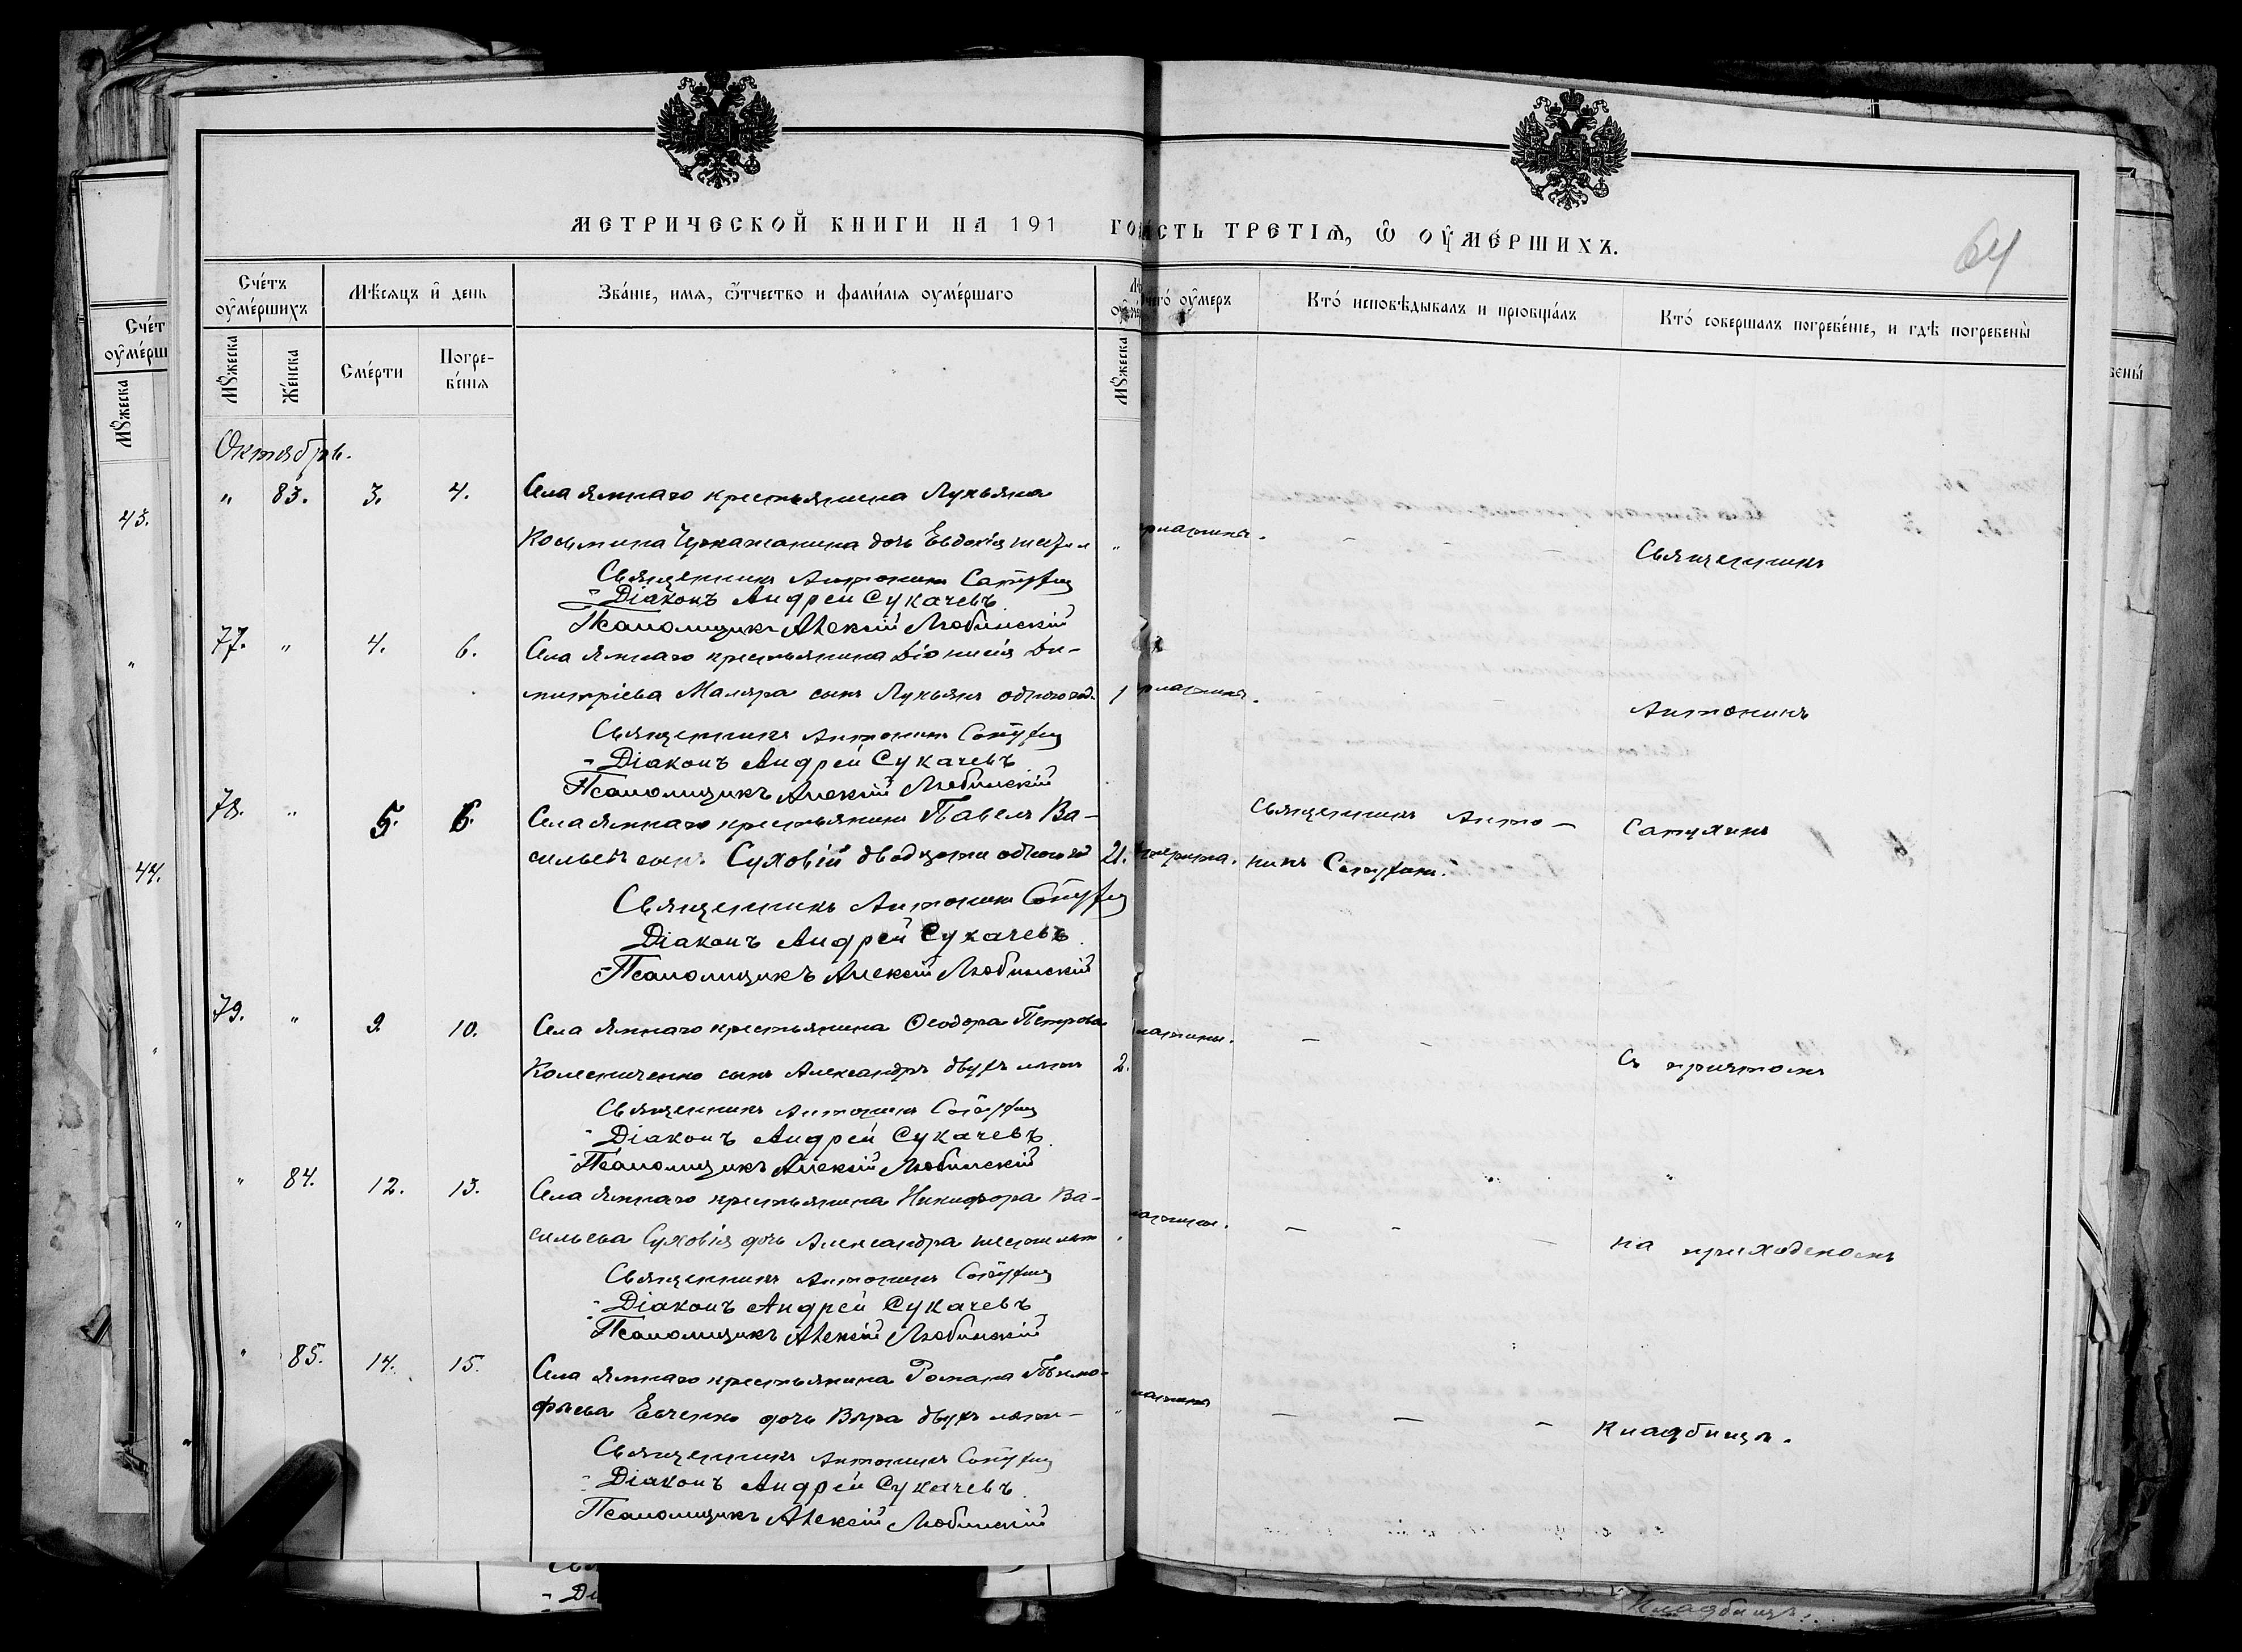 МЕТРИЧЕСКОЙ КНИГИ НА 191 ГО
СТЬ ТРЕТІѦ, Ѡ ОУМЕРШИХЪ.
64
Счетъ оумершихъ
Мѣсяцъ и день
Званіе, имя, ѿтчество и фамилія оумершаго
чего оумеръ
Кто исповѣдывалъ и пріобщалъ
Кто совершалъ погребеніе, и гдѣ погребены
Мужеска
Женска
Смерти
Погребенія
Мужеска
Октябрь.
" 83. 3. 4. Села Ямнаго крестьянина Лукьяна
Косьмина дочь Евдокія "
Священникъ Антонинъ Сапухин
Діаконъ Андрей Сукачевъ
Псаломщикъ Алексій Любинскій
Священникъ
77. " 4. 6. Села Ямнаго крестьянина Діонисія Ди-
митріева Маляра сынъ Лукьянъ одного год. 1
Священникъ Антонинъ Сапухин
Діаконъ Андрей Сукачевъ
Псаломщикъ Алексій Любинскій
Антонинъ
78. " 5. 6. Села Ямнаго крестьянинъ Павелъ Ва-
сильевъ сынъ Суховій двадцати одного год 21.
Священникъ Анто-
нинъ Сапухинъ.
Сапухинъ
Священникъ Антонинъ Сапухин
Діаконъ Андрей Сукачевъ
Псаломщикъ Алексій Любинскій
79. " 9. 10. Села Ямнаго крестьянина Ѳеодора Петрова
Колесниченко сынъ Александръ двухъ лѣтъ 2.
Съ причтомъ
Священникъ Антонинъ Сапухин
Діаконъ Андрей Сукачевъ
Псаломщикъ Алексій Любинскій
" 84. 12. 13. Села Ямнаго крестьянина Никифора Ва-
сильева Суховія дочь Александра шести лѣт
на приходскомъ
Священникъ Антонинъ Сапухин
Діаконъ Андрей Сукачевъ
Псаломщикъ Алексій Любинскій
" 85. 14. 15. Села Ямнаго крестьянина Романа Тимо-
фѣева Евченко дочь Вѣра двухъ лѣтъ "
кладбищѣ.
Священникъ Антонинъ Сапухин
Діаконъ Андрей Сукачевъ
Псаломщикъ Алексій Любинскій
Счет
оумерш
Мужеска
43.
44.
Кладбищѣ.